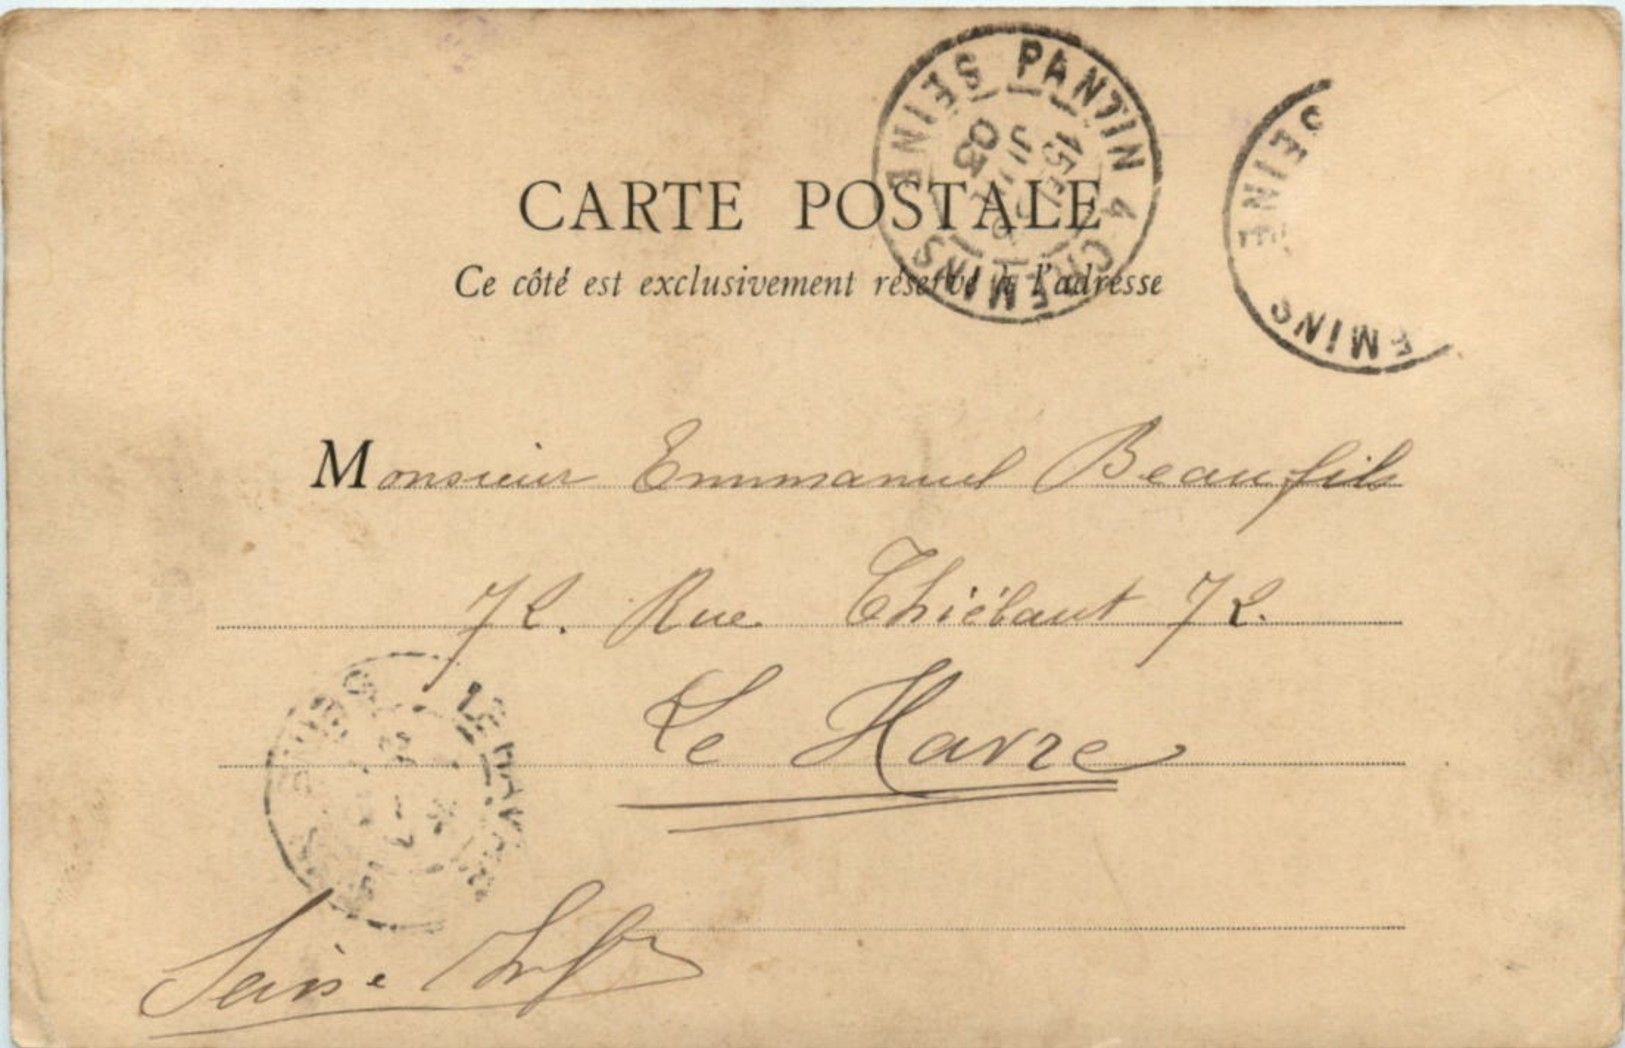 CARTE POSTALE
Ce côté est exclusivement réservé à l'adresse
PANTIN 4 CHEMINS
SEINE
15E
JUIL
03
SEINE
EMINS
Monsieur Emmanuel Beaufils
72. Rue Thiébaut 72.
Le Havre
LE HAVRE
Seine Infre